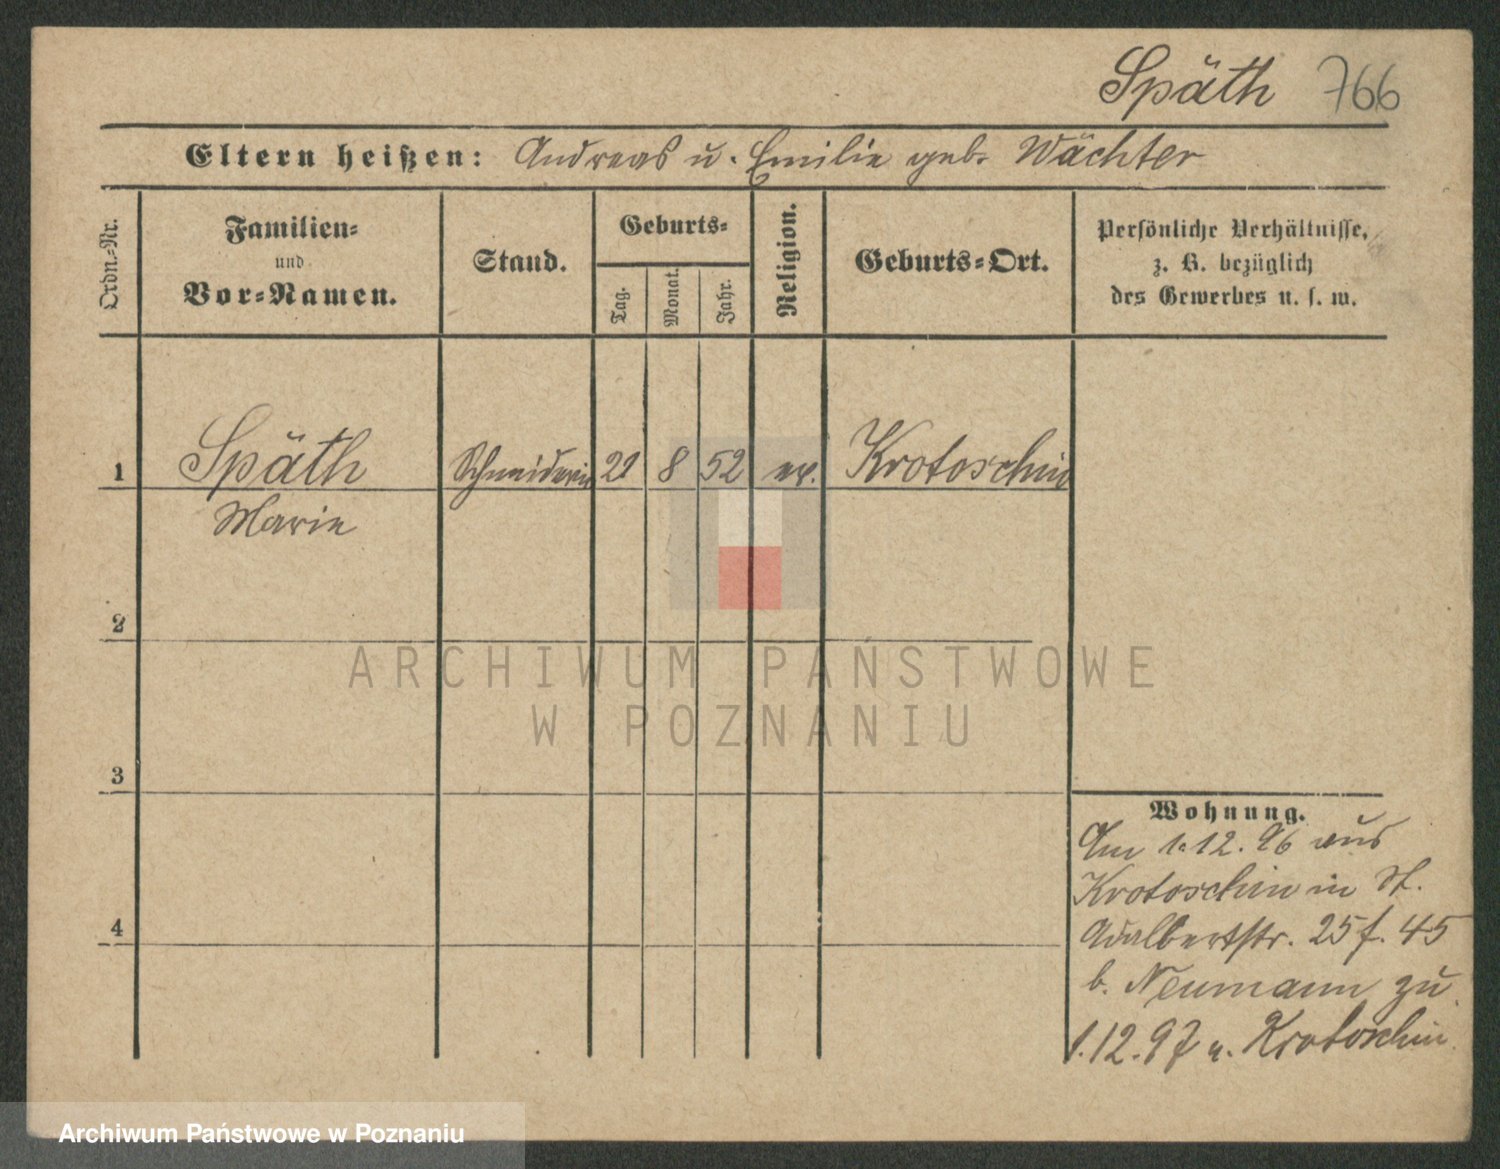 Späth 766
Eltern heißen: Andreas u. Emilie geb. Wächter
Ordn.-Nr.
Familien-
und
Vor-Namen.
Stand.
Geburts-
Tag.
Monat.
Jahr.
Religion.
Geburts-Ort.
Persönliche Verhältnisse,
z. B. bezüglich
des Gewerbes u. s. w.
1 Späth Schneiderin 21 8 52 ev. Krotoschin
Marie
2
3
4
Wohnung.
Am 1.12.96 aus
Krotoschin in St.
Adalbertstr. 25 f. 45
b. Neumann zu
1.12.97 n. Krotoschin
ARCHIWUM PAŃSTWOWE
W POZNANIU
Archiwum Państwowe w Poznaniu